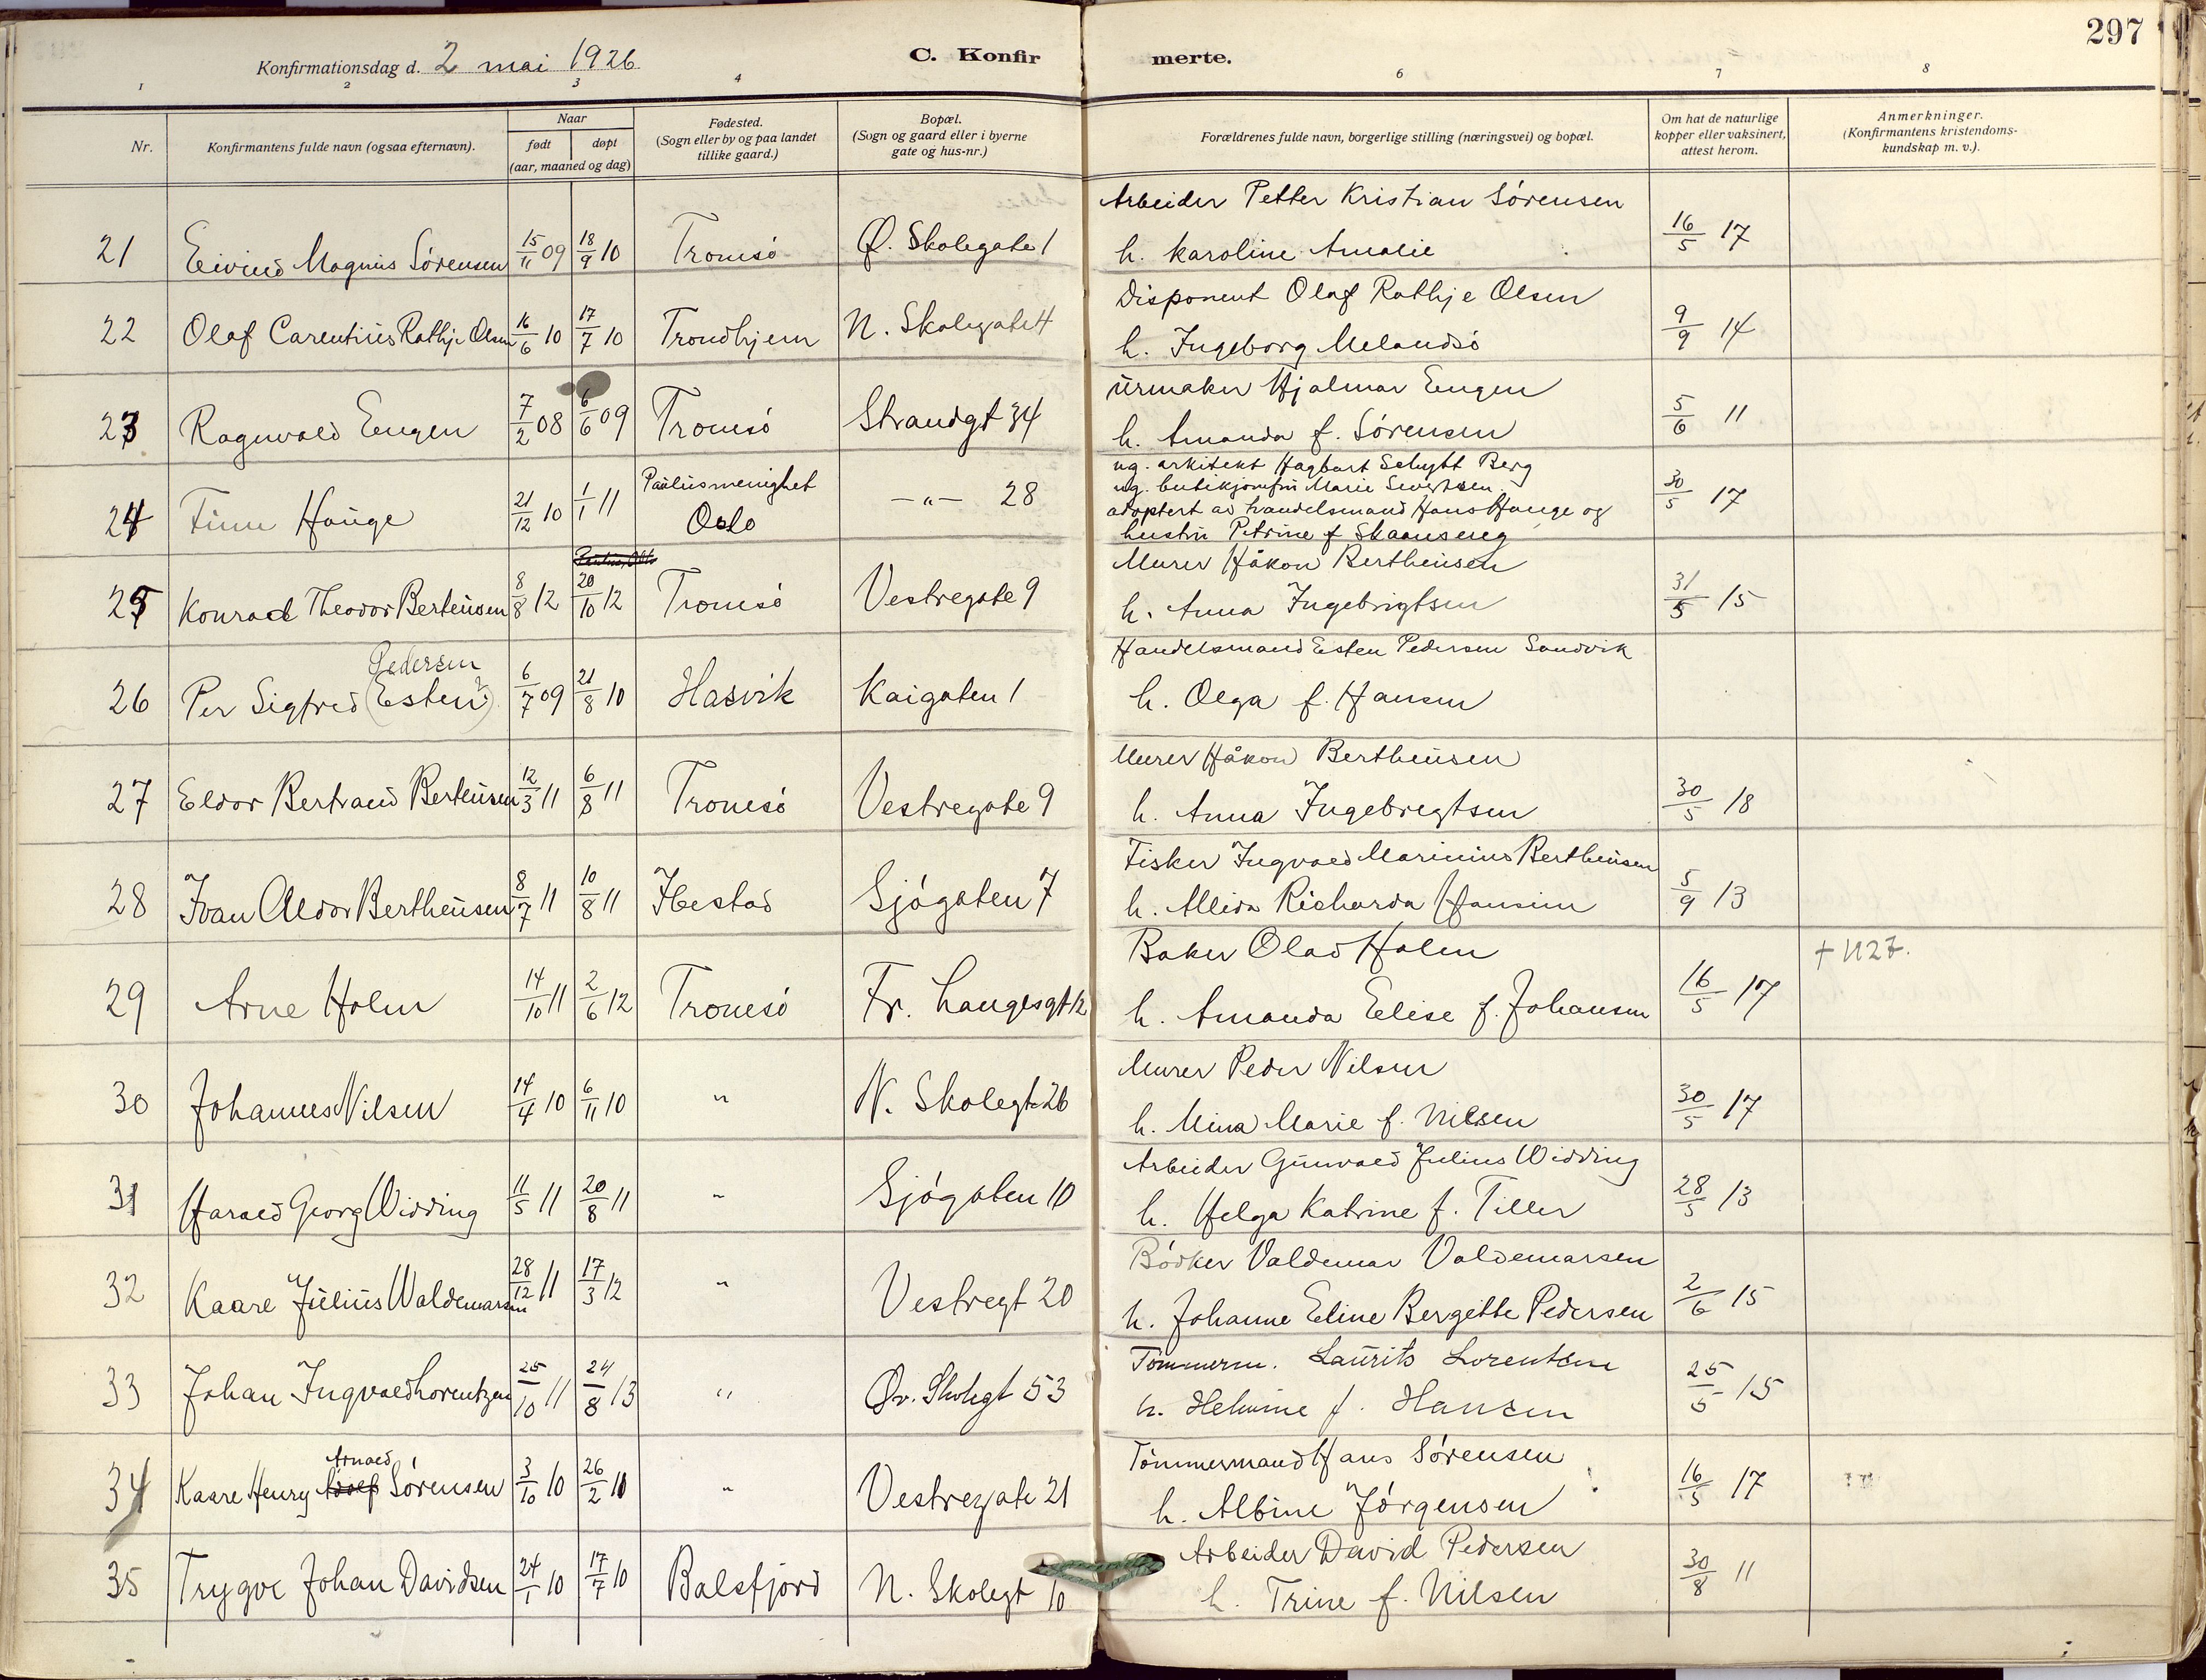 297
Konfirmationsdag d. 2 mai 1926
C. Konfirmerte.
1 2 3 4 6 7 8
Nr.
Konfirmantens fulde navn (ogsaa efternavn).
Naar
født døpt
(aar, maaned og dag)
Fødested.
(Sogn eller by og paa landet
tillike gaard.)
Bopæl.
(Sogn og gaard eller i byerne
gate og hus-nr.)
Forældrenes fulde navn, borgerlige stilling (næringsvei) og bopæl.
Om hat de naturlige
kopper eller vaksinert,
attest herom.
Anmerkninger.
(Konfirmantens kristendoms-
kundskap m. v.).
Arbeider Petter Kristian Sørensen
21 Eivind Magnus Sørensen 15/11 09 18/9 10 Tromsö Ø. Skolegate 1 h. Karoline Amalie 16/5 17
Disponent Olaf Rathje Olsen
22 Olaf Carentius Rathje Olsen 16/6 10 17/7 10 Trondhjem N. Skolegate 4 h. Ingeborg Melandsö 9/9 14
Urmaker Hjalmar Engen
23 Ragnvald Engen 7/2 08 6/6 09 Tromsö Strandgt 34 h. Amanda f. Sørensen 5/6 11
ug. arkitekt Hagbart Schytt Berg
Paulusmenighet ug. butikjomfru Marie Sivertsen
24 Finn Hauge 21/12 10 1/1 11 Oslo —"— 28 adoptert av handelsmand Hans Hauge og 30/5 17
hustru Petrine f Skaanseng
Murer Håkon Bertheusen
25 Konrad Theodor Berteusen 8/8 12 20/10 12 Tromsö Vestregate 9 h. Anna Ingebrigtsen 31/5 15
Pedersen Handelsmand Esten Pedersen Sandvik
26 Per Sigfred (Esten?) 6/7 09 21/8 10 Hasvik Kaigaten 1 h. Olga f. Hansen
Murer Håkon Bertheusen
27 Eldor Bertrand Berteusen 12/3 11 6/8 11 Tromsö Vestregate 9 h. Anna Ingebregtsen 30/5 18
Fisker Ingvald Marinius Bertheusen
28 Ivan Aldor Bertheusen 8/7 11 10/8 11 Ibestad Sjøgaten 7 h. Alida Richarda Hansen 5/9 13
Baker Olav Holm + 1127.
29 Arne Holm 14/10 11 2/6 12 Tromsö Fr. Langesgt 12 h. Amanda Elise f. Johansen 16/5 17
Murer Peder Nilsen
30 Johannes Nilsen 14/4 10 6/11 10 " N. Skolegt 26 h. Mina Marie f. Nilsen 30/5 17
Arbeider Gunvald Julius Widding
31 Harald Georg Widding 11/5 11 20/8 11 " Sjøgaten 10 h. Helga Katrine f. Tiller 28/5 13
Bødker Valdemar Valdemarsen
32 Kaare Julius Waldemarsen 28/12 11 17/3 12 " Vestregt 20 h. Johanne Eline Bergitte Pedersen 2/6 15
Tømmerm. Laurits Lorentsen
33 Johan Ingvald Lorentzen 25/10 11 24/8 13 " Øv. Skolegt 53 h. Helmine f. Hansen 25/5 15
Arnold Tömmermand Hans Sørensen
34 Kaare Henry Adolf Sörensen 3/10 10 26/2 10 " Vestregate 21 h. Albine Jörgensen 16/5 17
Arbeider David Pedersen
35 Trygve Johan Davidsen 24/1 10 17/7 10 Balsfjord N. Skolegt 10 h. Trine f. Nilsen 30/8 11